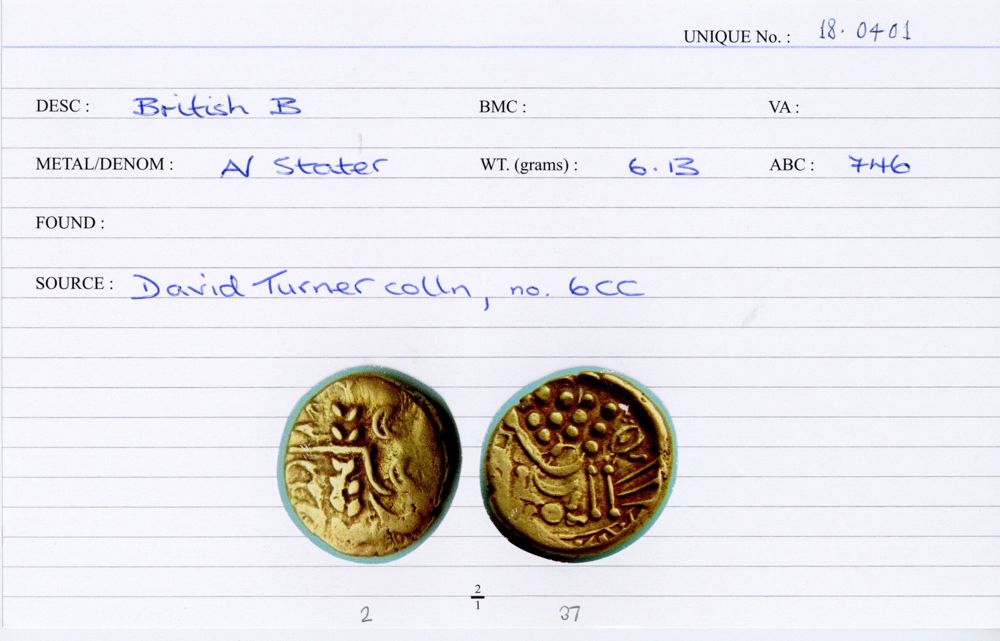 UNIQUE No. : 18.0401
DESC : British B BMC : VA :
METAL/DENOM : AV Stater WT. (grams) : 6.13 ABC : 746
FOUND :
SOURCE : David Turner colln, no. 6CC
2/1
2 37